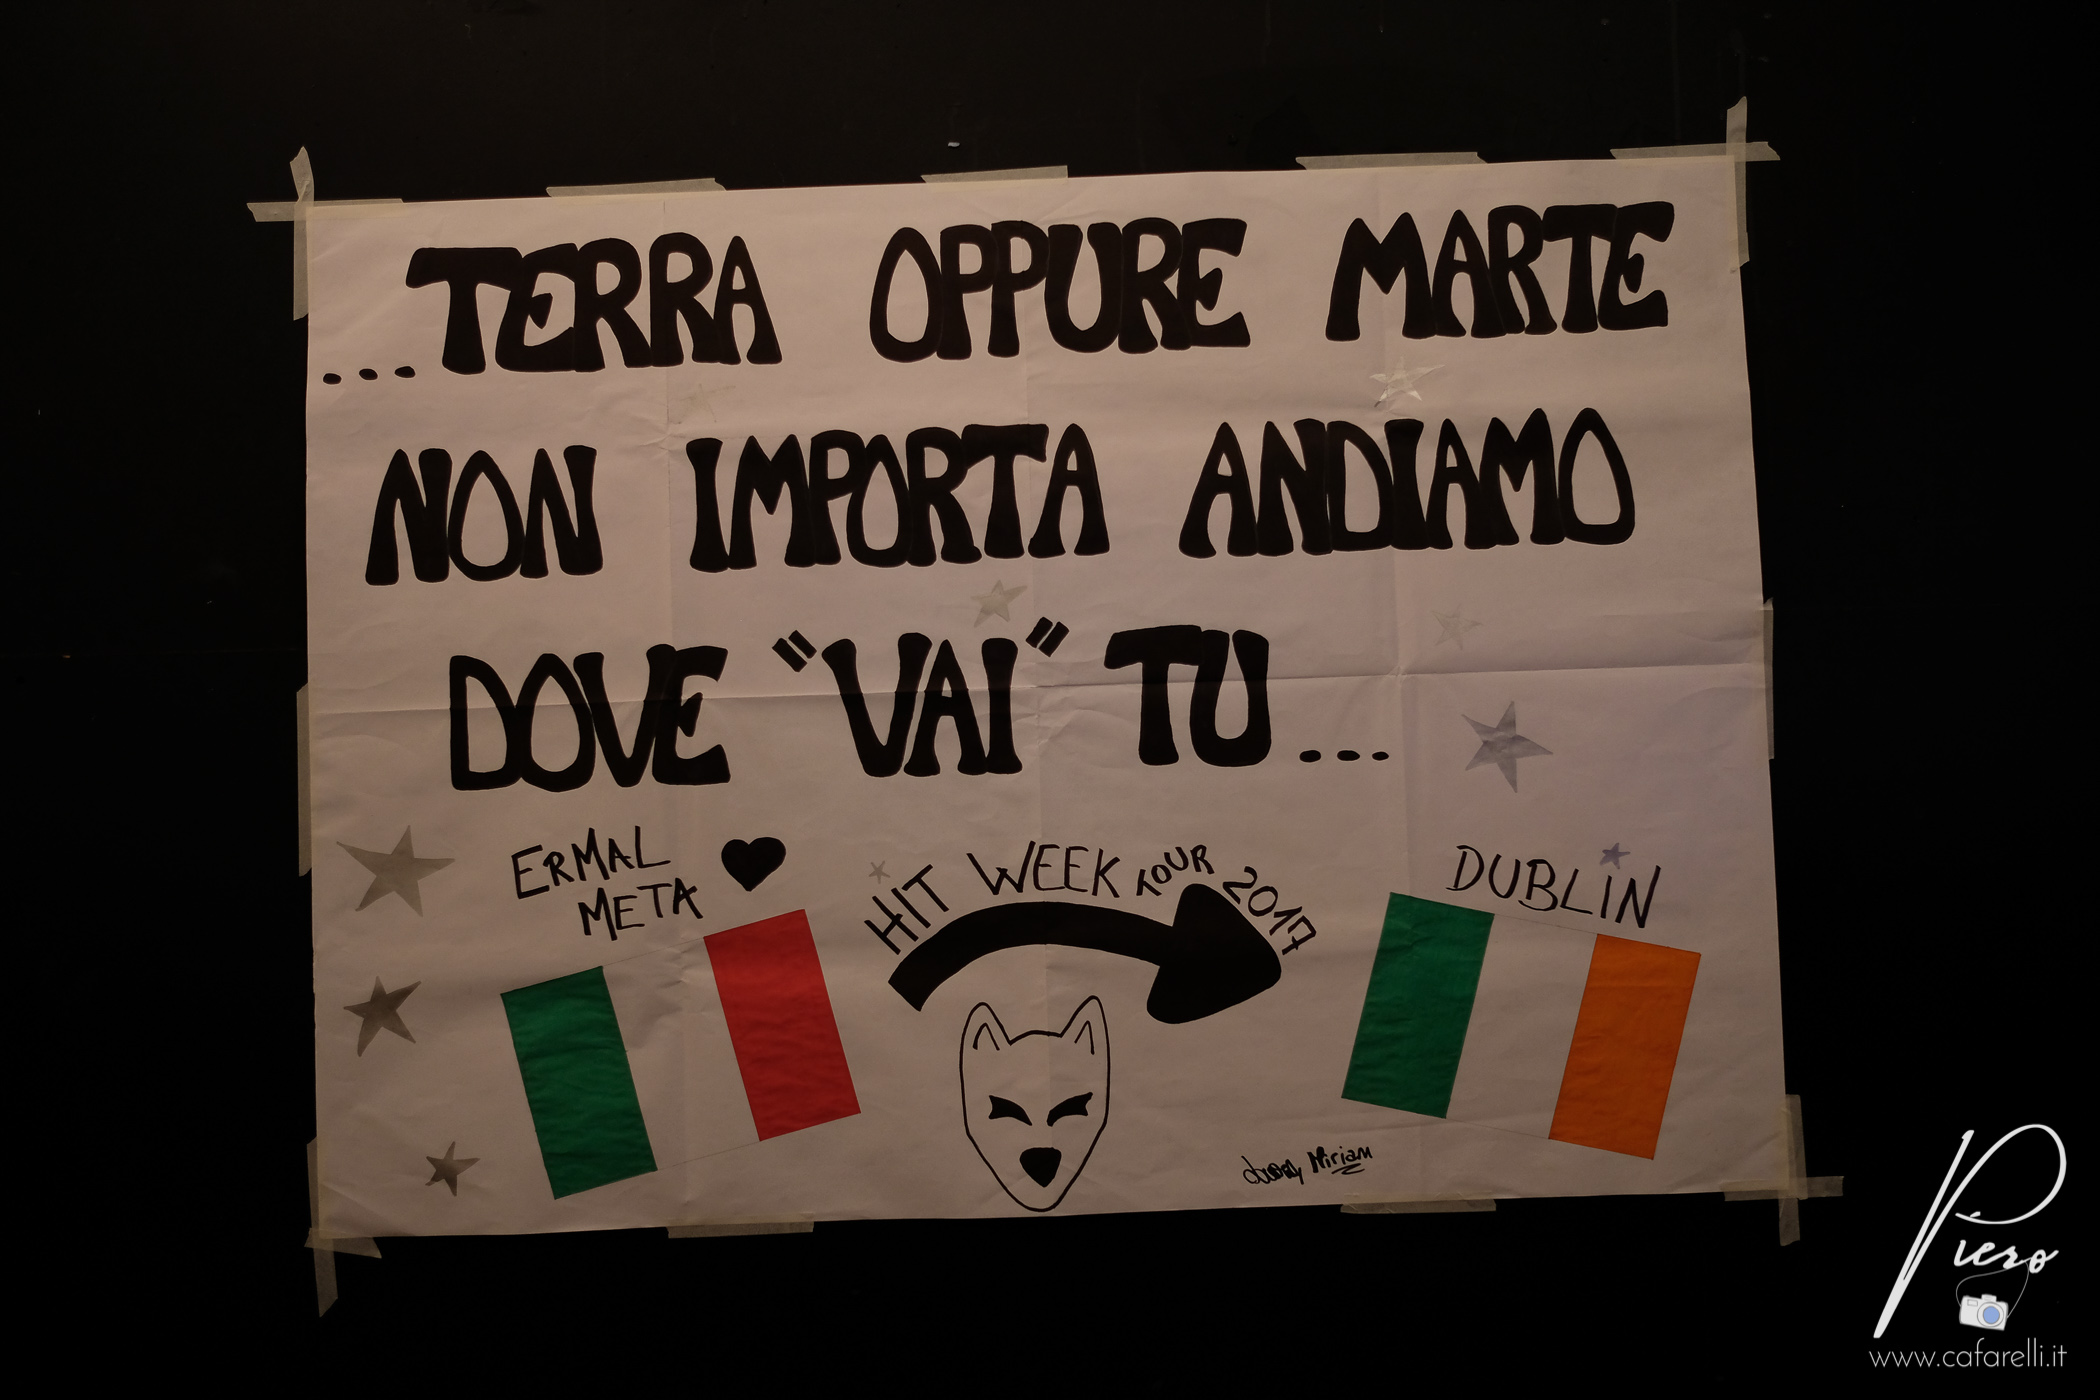 ...TERRA OPPURE MARTE
NON IMPORTA ANDIAMO
DOVE "VAI" TU...
ERMAL
META
HIT WEEK TOUR 2017
DUBLIN
Miriam
Piero
www.cafarelli.it